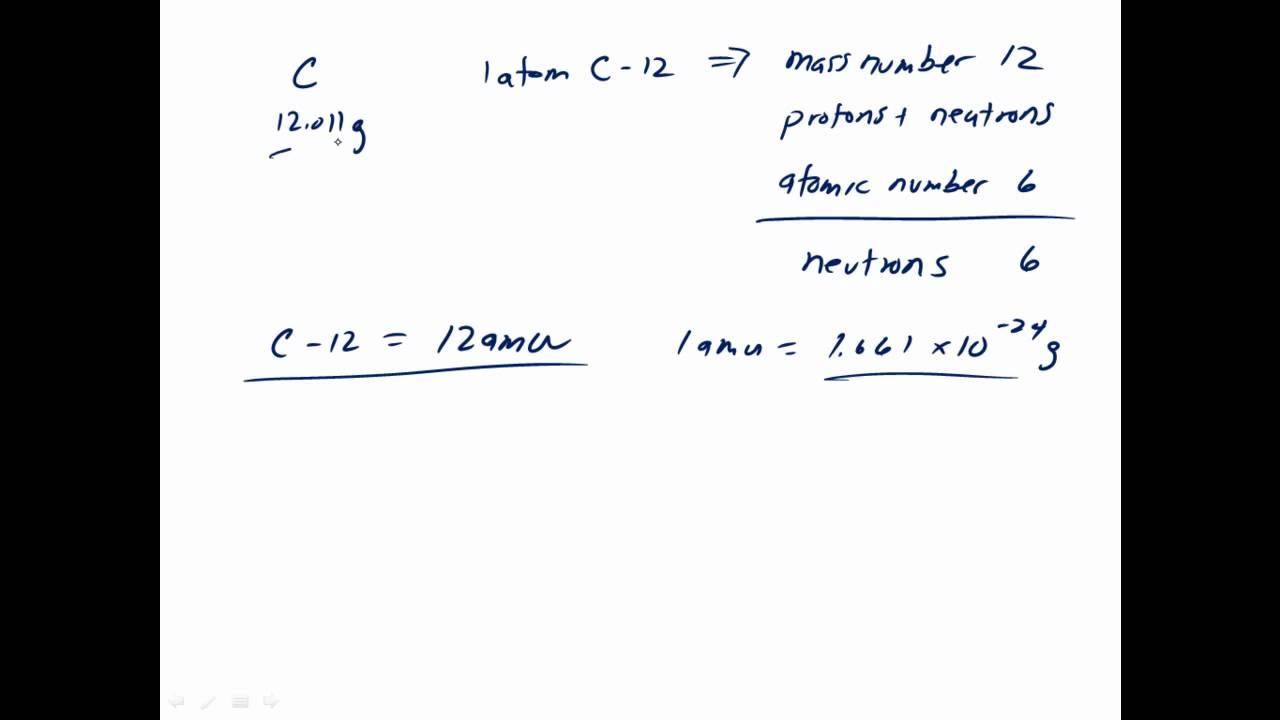 C 1 atom C-12 ⇒ mass number 12
12.011g protons + neutrons
atomic number 6
neutrons 6
C-12 = 12amu 1 amu = 1.661 × 10⁻²⁴ g